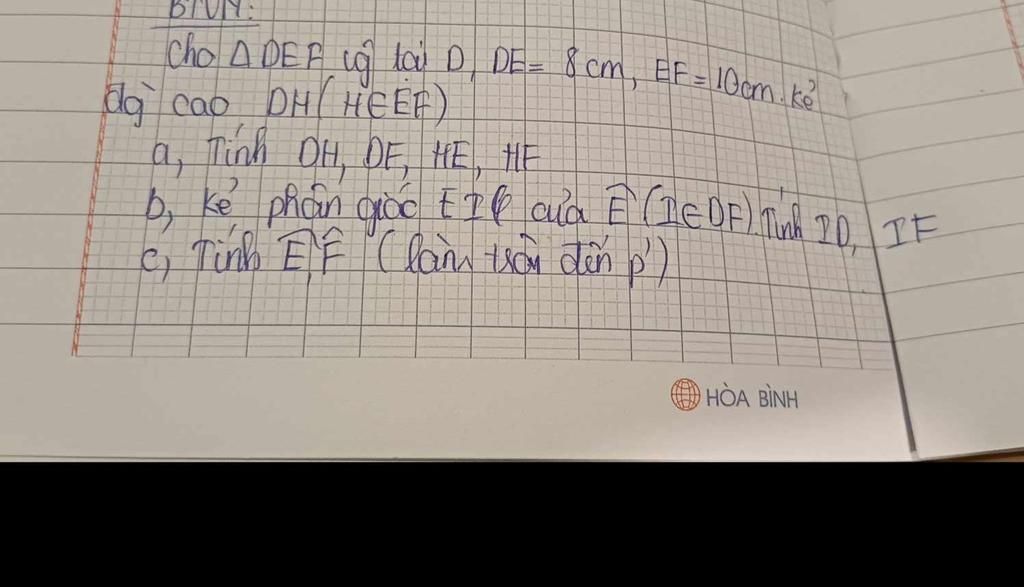 BTVN:
Cho Δ DEF vg tại D, DE = 8cm, EF = 10cm. Kẻ
đg cao DH (H∈EF)
a, Tính DH, DF, HE, HF
b, Kẻ phân giác EI của Ê (I∈DF). Tính ID, IF
c, Tính Ê, F̂ (làm tròn đến p')
HÒA BÌNH